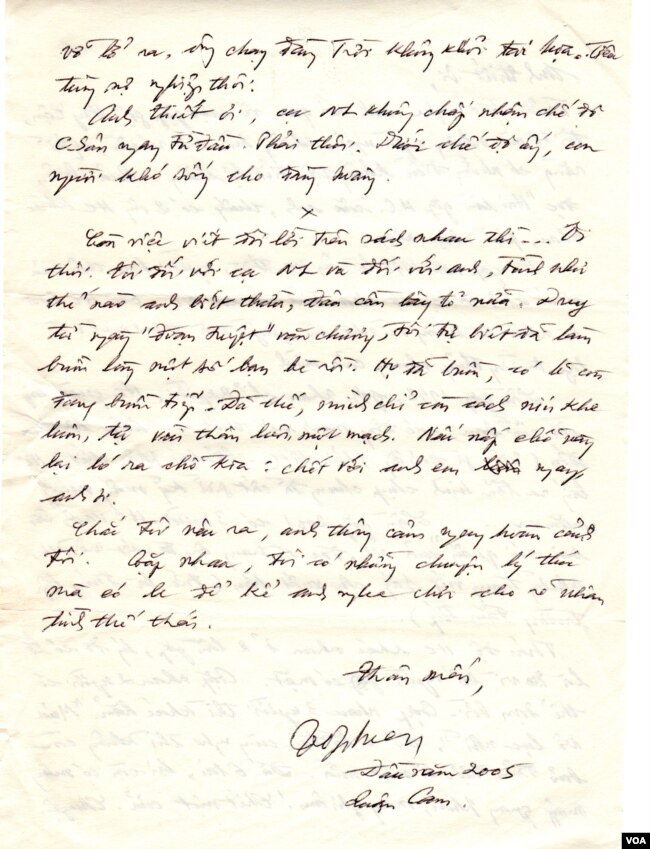 vỡ lở ra, ông chạy đàng Trời không khỏi tai họa. Tiền
túng nó nghiệp thôi.
Anh thiết ơi, cụ NL không chấp nhận chế độ
C.Sản ngay từ đầu. Phải thôi. Dưới chế độ ấy, con
người khó sống cho đàng hoàng.
x
Còn việc viết đôi lời trên sách nhau thì... Ôi
thôi. Tôi đối với cụ NL và đối với anh, tình như
thế nào anh biết thừa, đâu cần bày tỏ nữa. Duy
từ ngày "đoạn tuyệt" văn chương, tôi tự biết đã làm
buồn lòng một số bạn bè rồi. Họ đã buồn, có lẽ còn
đang buồn tiếp. Đã thế, mình chỉ còn cách níu khe
luôn, từ vai thân luôn một mạch. Nếu nói chỗ này
lại ló ra chỗ kia: chết với anh em ngay
anh ơi.
Chắc từ nêu ra, anh thông cảm ngay hoàn cảnh
tôi. Gặp nhau, tôi có những chuyện lý thú
mà có lẽ để kể anh nghe chơi cho rõ nhân
tình thế thái.
Thân mến,
Đầu năm 2005
VOA